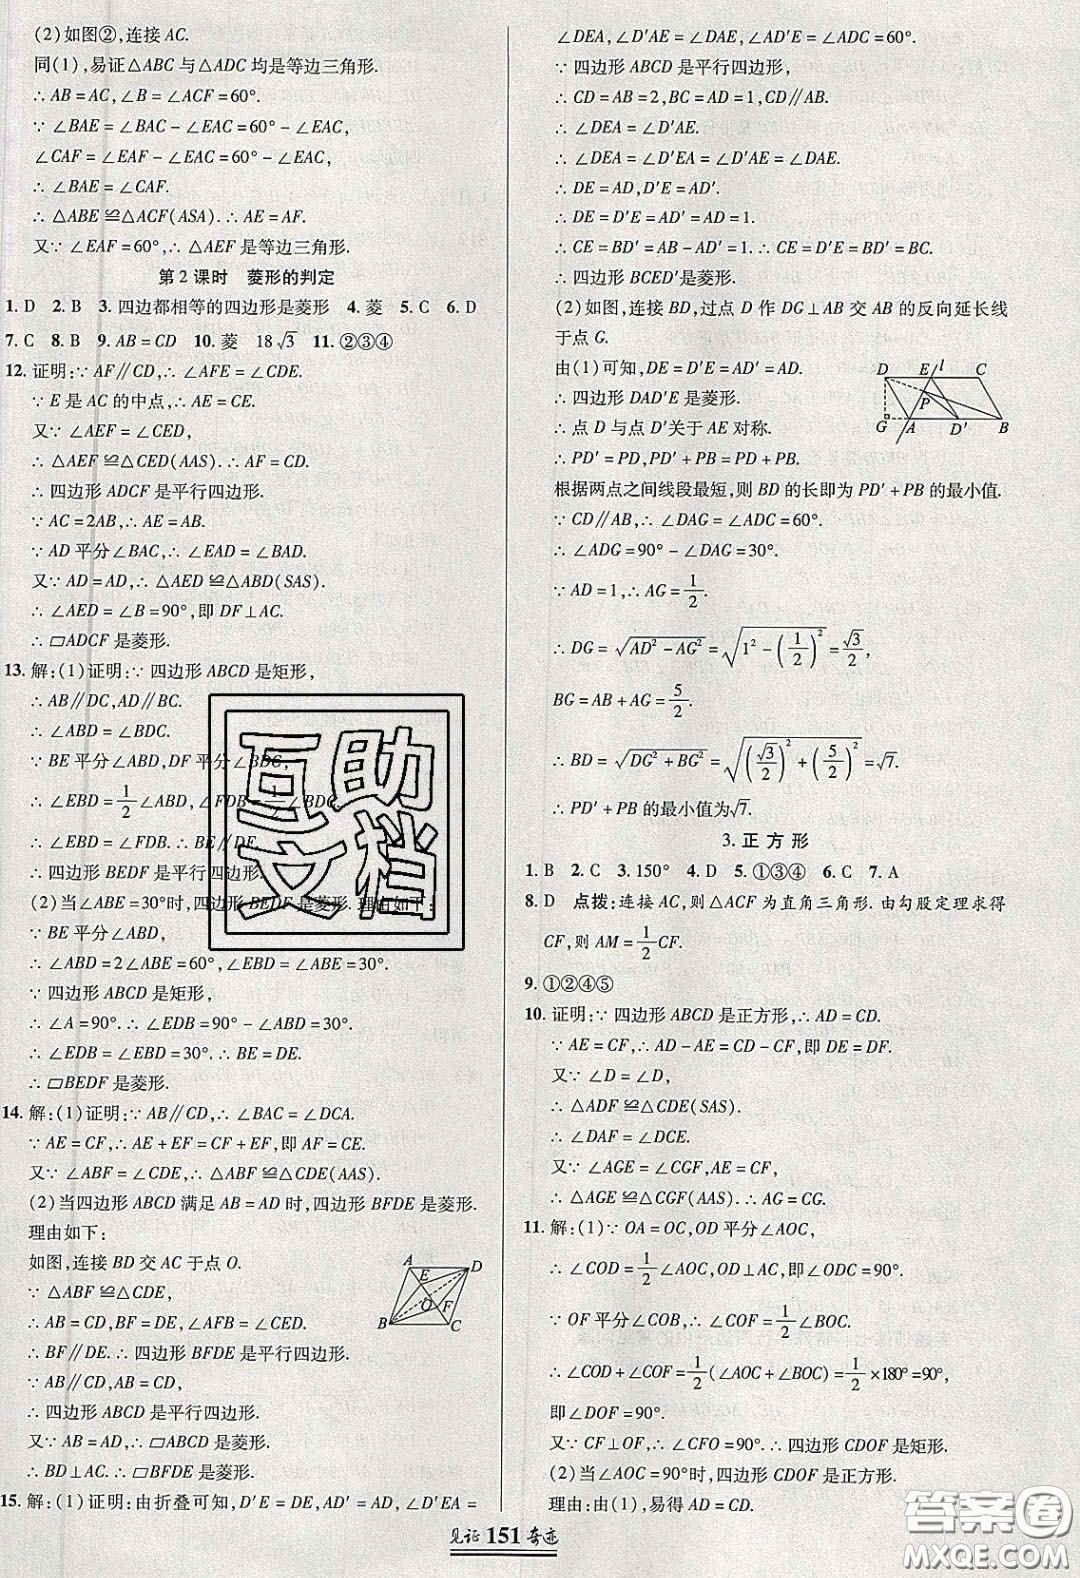 (2)如图②,连接 AC.
同(1),易证△ABC 与△ADC 均是等边三角形.
∴ AB = AC,∠B = ∠ACF = 60°.
∵ ∠BAE = ∠BAC - ∠EAC = 60° - ∠EAC,
∠CAF = ∠EAF - ∠EAC = 60° - ∠EAC,
∴ ∠BAE = ∠CAF.
∴ △ABE ≌△ACF(ASA). ∴ AE = AF.
又∵ ∠EAF = 60°,∴ △AEF 是等边三角形.
第 2 课时　菱形的判定
1. D　2. B　3. 四边都相等的四边形是菱形　4. 菱　5. C　6. D
7. C　8. B　9. AB = CD　10. 菱　18√3　11. ②③④
12. 证明:∵ AF∥CD,∴ ∠AFE = ∠CDE.
∵ E 是 AC 的中点,∴ AE = CE.
又∵ ∠AEF = ∠CED,
∴ △AEF ≌△CED(AAS). ∴ AF = CD.
∴ 四边形 ADCF 是平行四边形.
∵ AC = 2AB,∴ AE = AB.
∵ AD 平分∠BAC,∴ ∠EAD = ∠BAD.
又∵ AD = AD,∴ △AED ≌△ABD(SAS).
∴ ∠AED = ∠B = 90°,即 DF⊥AC.
∴ ▱ADCF 是菱形.
13. 解:(1)证明:∵ 四边形 ABCD 是矩形,
∴ AB∥DC,AD∥BC.
∴ ∠ABD = ∠BDC.
∵ BE 平分∠ABD,DF 平分∠BDC,
∴ ∠EBD = 1/2 ∠ABD,∠FDB = 1/2 ∠BDC.
∴ ∠EBD = ∠FDB. ∴ BE∥DF.
∴ 四边形 BEDF 是平行四边形.
(2)当∠ABE = 30°时,四边形 BEDF 是菱形. 理由如下:
∵ BE 平分∠ABD,
∴ ∠ABD = 2∠ABE = 60°,∠EBD = ∠ABE = 30°.
∵ 四边形 ABCD 是矩形,
∴ ∠A = 90°. ∴ ∠EDB = 90° - ∠ABD = 30°.
∴ ∠EDB = ∠EBD = 30°. ∴ BE = DE.
∴ ▱BEDF 是菱形.
14. 解:(1)证明:∵ AB∥CD,∴ ∠BAC = ∠DCA.
∵ AE = CF,∴ AE + EF = CF + EF,即 AF = CE.
又∵ ∠ABF = ∠CDE,∴ △ABF ≌△CDE(AAS).
(2)当四边形 ABCD 满足 AB = AD 时,四边形 BFDE 是菱形.
理由如下:
如图,连接 BD 交 AC 于点 O.
∵ △ABF ≌△CDE,
∴ AB = CD,BF = DE,∠AFB = ∠CED.
∴ BF∥DE. ∴ 四边形 BFDE 是平行四边形.
∵ AB∥CD,AB = CD,
∴ 四边形 ABCD 是平行四边形.
又∵ AB = AD,∴ ▱ABCD 是菱形.
∴ BD⊥AC. ∴ ▱BFDE 是菱形.
A D E O F B C
15. 解:(1)证明:由折叠可知,D′E = DE,AD′ = AD,∠D′EA =
∠DEA,∠D′AE = ∠DAE,∠AD′E = ∠ADC = 60°.
∵ 四边形 ABCD 是平行四边形,
∴ CD = AB = 2,BC = AD = 1,CD∥AB.
∴ ∠DEA = ∠D′AE.
∴ ∠DEA = ∠D′EA = ∠D′AE = ∠DAE.
∴ DE = AD,D′E = AD′.
∴ DE = D′E = AD′ = AD = 1.
∴ CE = BD′ = AD = 1. ∴ CE = D′E = BD′ = BC.
∴ 四边形 BCED′是菱形.
(2)如图,连接 BD,过点 D 作 DG⊥AB 交 AB 的反向延长线
于点 G.
由(1)可知,DE = D′E = AD′ = AD.
∴ 四边形 DAD′E 是菱形.
∴ 点 D 与点 D′关于 AE 对称.
∴ PD′ = PD,PD′ + PB = PD + PB.
D E l C P G A D′ B
根据两点之间线段最短,则 BD 的长即为 PD′ + PB 的最小值.
∵ CD∥AB,∴ ∠DAG = ∠ADC = 60°.
∴ ∠ADG = 90° - ∠DAG = 30°.
∵ AD = 1,∴ AG = 1/2.
∴ DG = √(AD² - AG²) = √(1² - (1/2)²) = √3/2,
BG = AB + AG = 5/2.
∴ BD = √(DG² + BG²) = √((√3/2)² + (5/2)²) = √7.
∴ PD′ + PB 的最小值为√7.
3. 正 方 形
1. B　2. C　3. 150°　4. D　5. ①③④　6. C　7. A
8. D　点拨:连接 AC,则△ACF 为直角三角形. 由勾股定理求得
CF,则 AM = 1/2 CF.
9. ①②④⑤
10. 证明:∵ 四边形 ABCD 是正方形,∴ AD = CD.
∵ AE = CF,∴ AD - AE = CD - CF,即 DE = DF.
又∵ ∠D = ∠D,
∴ △ADF ≌△CDE(SAS).
∴ ∠DAF = ∠DCE.
又∵ ∠AGE = ∠CGF,AE = CF,
∴ △AGE ≌△CGF(AAS). ∴ AG = CG.
11. 解:(1)∵ OA = OC,OD 平分∠AOC,
∴ ∠COD = 1/2 ∠AOC,OD⊥AC,即∠ODC = 90°.
∵ OF 平分∠BOC,∴ ∠COF = 1/2 ∠BOC.
∴ ∠COD + ∠COF = 1/2 (∠AOC + ∠BOC) = 1/2 × 180° = 90°,
即∠DOF = 90°.
又∵ CF⊥OF,∴ ∠CFO = 90°. ∴ 四边形 CDOF 是矩形.
(2)当∠AOC = 90°时,四边形 CDOF 是正方形.
理由:由(1),易得 AD = CD.
见证 151 奇迹
互助
文档
答案圈
MXQE.COM